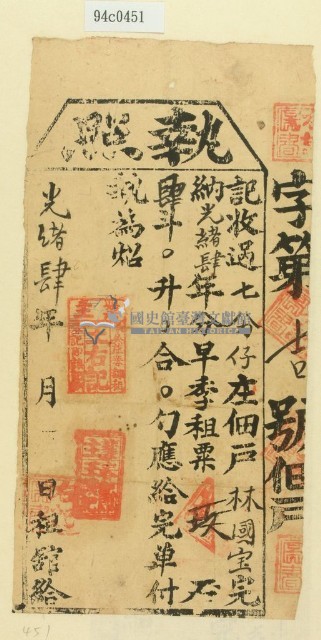 94c0451
執照
字第 吉 號佃戶
記收過七分仔庄佃戶林國宝完
納光緒肆年早季租粟玖石
肆斗○升 合○勺應給完單付
執為炤
光緒肆年 月 日租館給
國史館臺灣文獻館
TAIWAN HISTORICA
451